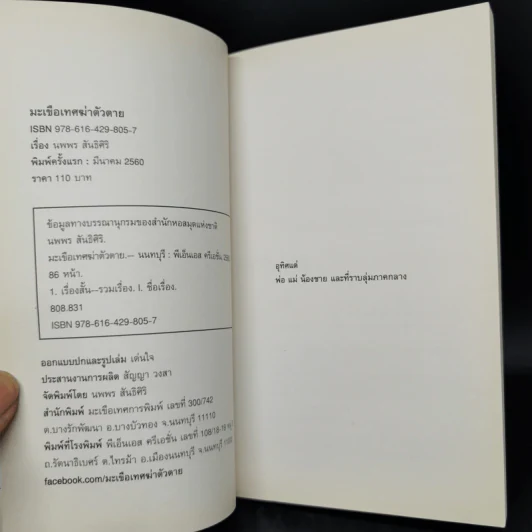 มะเขือเทศฆ่าตัวตาย
ISBN 978-616-429-805-7
เรื่อง นพพร สันธิศิริ
พิมพ์ครั้งแรก : มีนาคม 2560
ราคา 110 บาท
ข้อมูลทางบรรณานุกรมของสำนักหอสมุดแห่งชาติ
นพพร สันธิศิริ.
มะเขือเทศฆ่าตัวตาย.-- นนทบุรี : พีเอ็นเอส ครีเอชั่น
86 หน้า.
1. เรื่องสั้น--รวมเรื่อง. I. ชื่อเรื่อง.
808.831
ISBN 978-616-429-805-7
ออกแบบปกและรูปเล่ม เด่นใจ
ประสานงานการผลิต สัญญา วงสา
จัดพิมพ์โดย นพพร สันธิศิริ
สำนักพิมพ์ มะเขือเทศการพิมพ์ เลขที่ 300/742
ต.บางรักพัฒนา อ.บางบัวทอง จ.นนทบุรี 11110
พิมพ์ที่โรงพิมพ์ พีเอ็นเอส ครีเอชั่น เลขที่ 108/18-19
ถ.รัตนาธิเบศร์ ต.ไทรม้า อ.เมืองนนทบุรี จ.นนทบุรี
facebook.com/มะเขือเทศฆ่าตัวตาย
อุทิศแด่
พ่อ แม่ น้องชาย และที่ราบลุ่มภาคกลาง